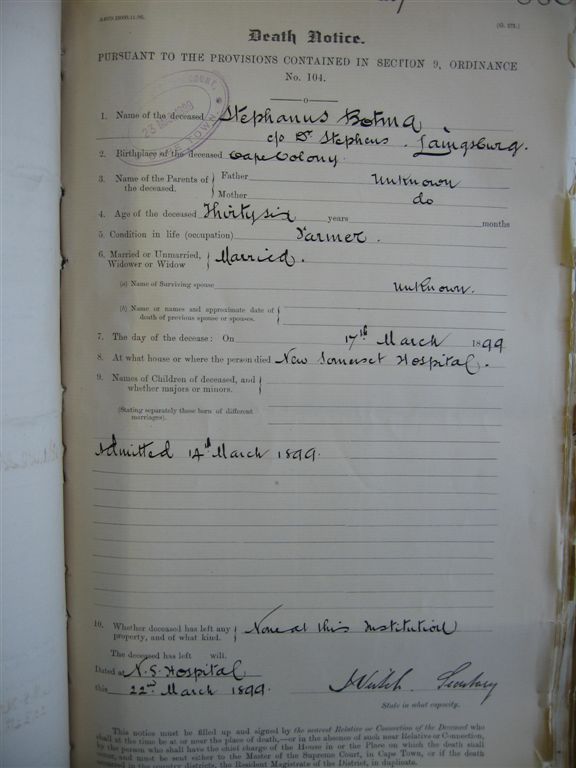 (G. 171.)
Death Notice.
PURSUANT TO THE PROVISIONS CONTAINED IN SECTION 9, ORDINANCE
No. 104.
1. Name of the deceased Stephanus Botma
c/o Dr Stephens. Laingsburg.
2. Birthplace of the deceased Cape Colony.
3. Name of the Parents of the deceased. { Father Unknown
Mother do
4. Age of the deceased Thirty six years months
5. Condition in life (occupation) Farmer.
6. Married or Unmarried, Widower or Widow { Married.
(a) Name of Surviving spouse unknown.
(b) Name or names and approximate date of death of previous spouse or spouses. {
7. The day of the decease: On 17th March 1899
8. At what house or where the person died New Somerset Hospital.
9. Names of Children of deceased, and whether majors or minors. {
(Stating separately those born of different marriages).
Admitted 14th March 1899.
10. Whether deceased has left any property, and of what kind. { None at this Institution
The deceased has left will.
Dated at N.S. Hospital
this 22nd March 1899. Secretary
State in what capacity.
This notice must be filled up and signed by the nearest Relative or Connection of the Deceased who
shall at the time be at or near the place of death,—or in the absence of such near Relative or Connection,
by the person who shall have the chief charge of the House in or the Place on which the death shall
occur, and must be sent either to the Master of the Supreme Court, in Cape Town, or if the death
occurred in the country districts, the Resident Magistrate of the District, in duplicate.